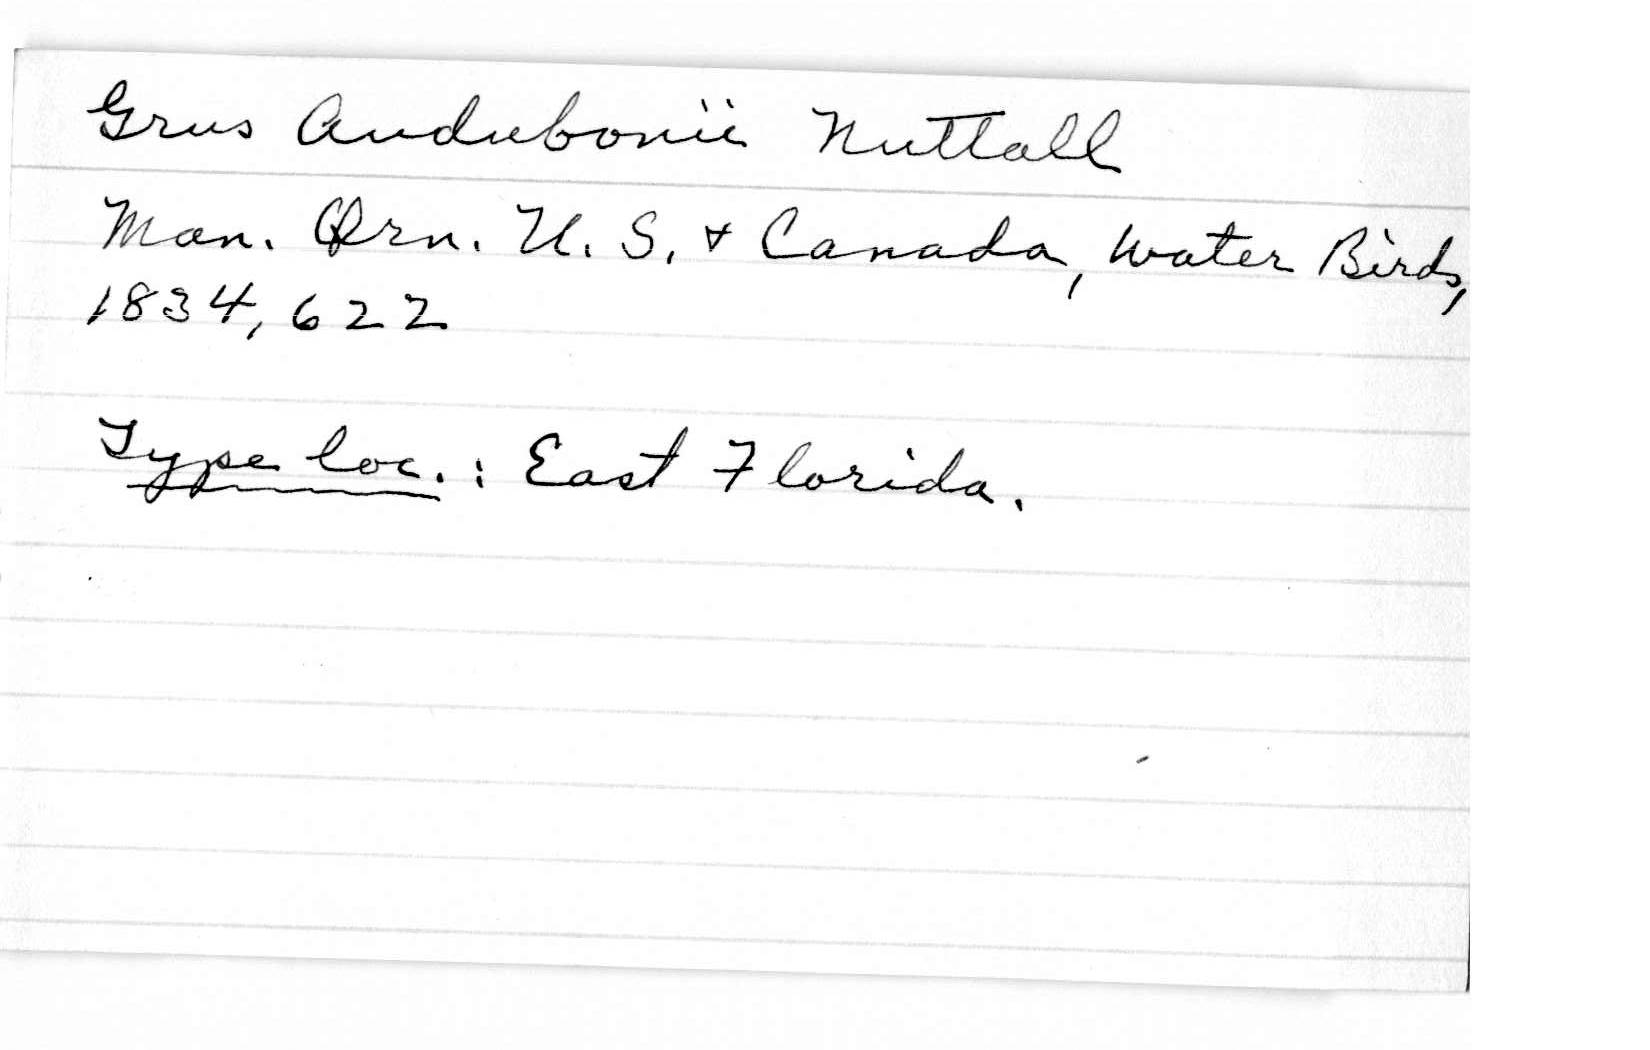 Grus Audubonii Nuttall
Man. Orn. U. S. & Canada, Water Birds,
1834, 622
Type loc.: East Florida.